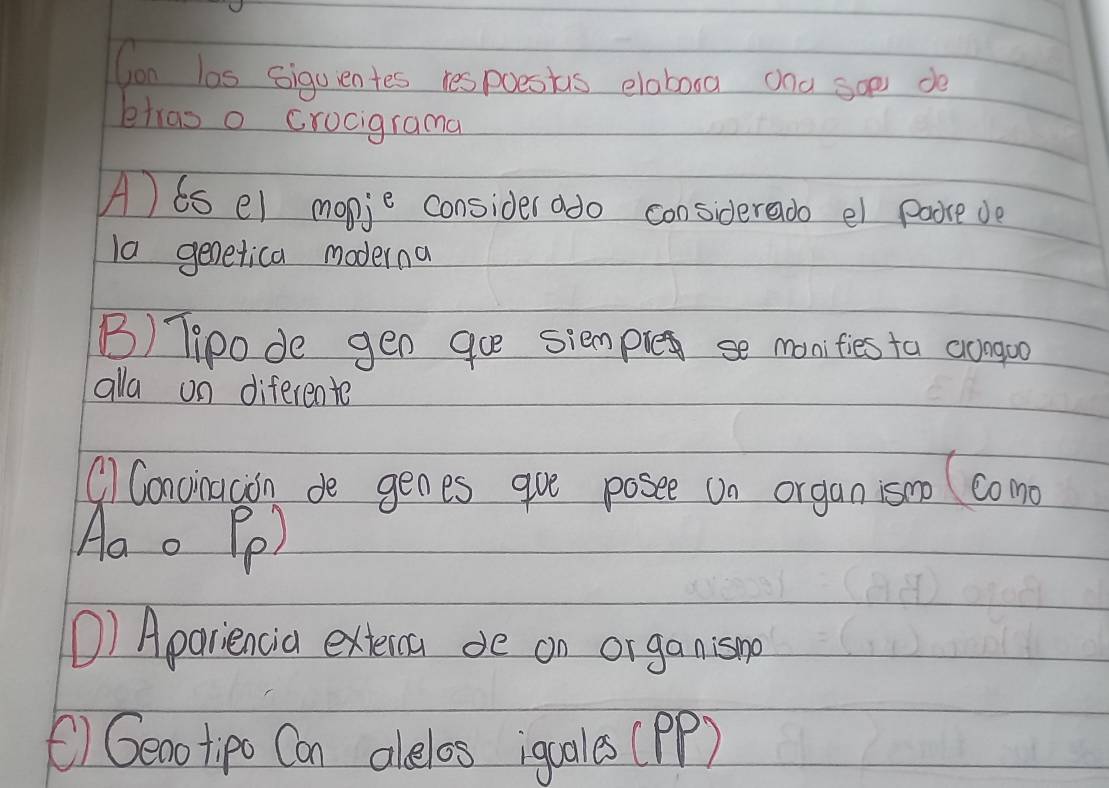 Con las siguientes respuestas elabora una sopa de
letras o crucigrama
A) Es el monje considerado considerado el Padre de
la genetica moderna
B) Tipo de gen que siempres se manifiesta aunquo
alla un diferente
C) Concinación de genes que posee un organismo (como
Aa o Pp)
D) Apariencia externa de un organismo
E) Genotipo Con alelos iguales (PP)